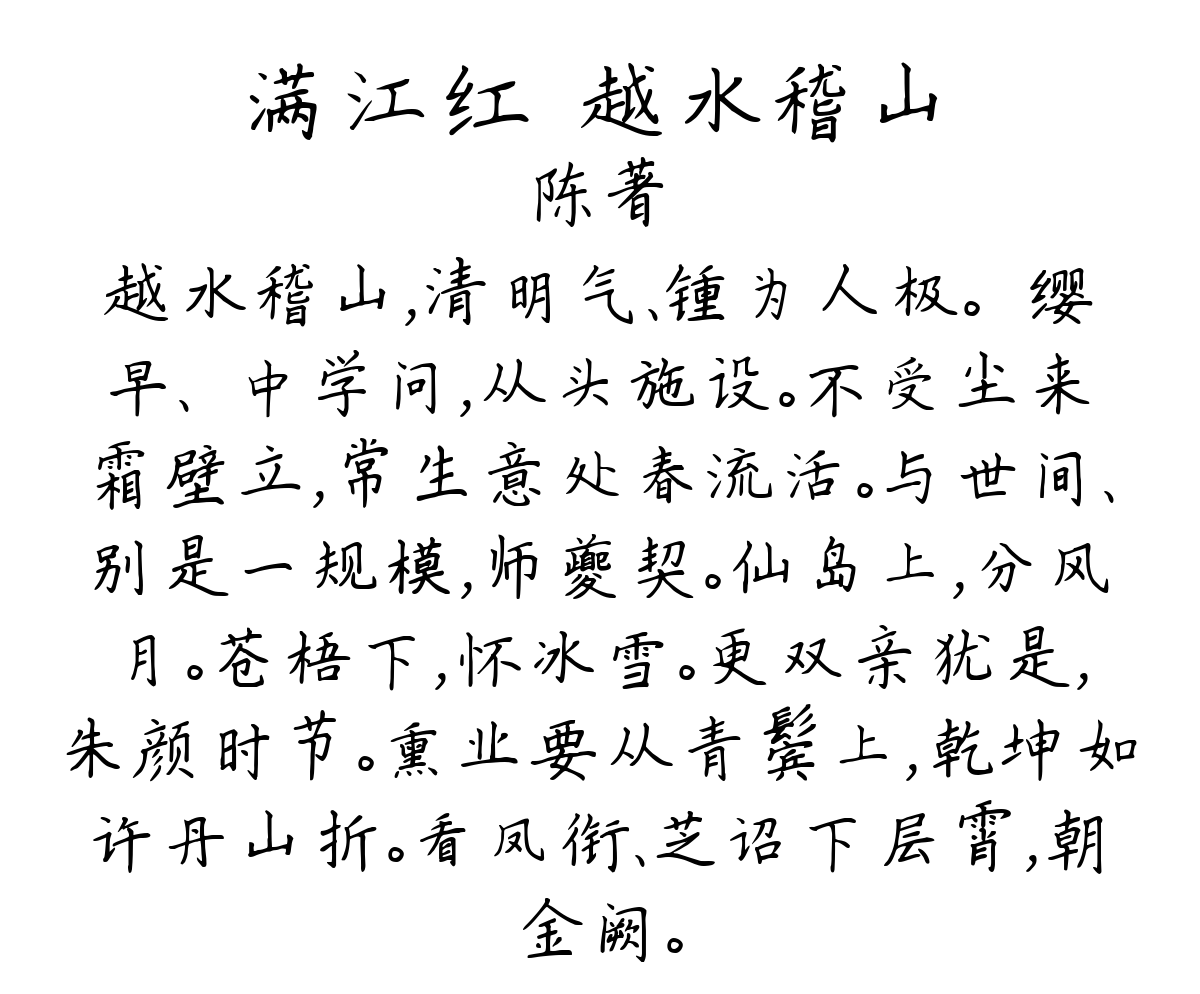 满江红 越水稽山
陈著
越水稽山,清明气、锺为人极。缨
早、中学问,从头施设。不受尘来
霜壁立,常生意处春流活。与世间、
别是一规模,师夔契。仙岛上,分风
月。苍梧下,怀冰雪。更双亲犹是,
朱颜时节。熏业要从青鬓上,乾坤如
许丹山折。看凤衔、芝诏下层霄,朝
金阙。